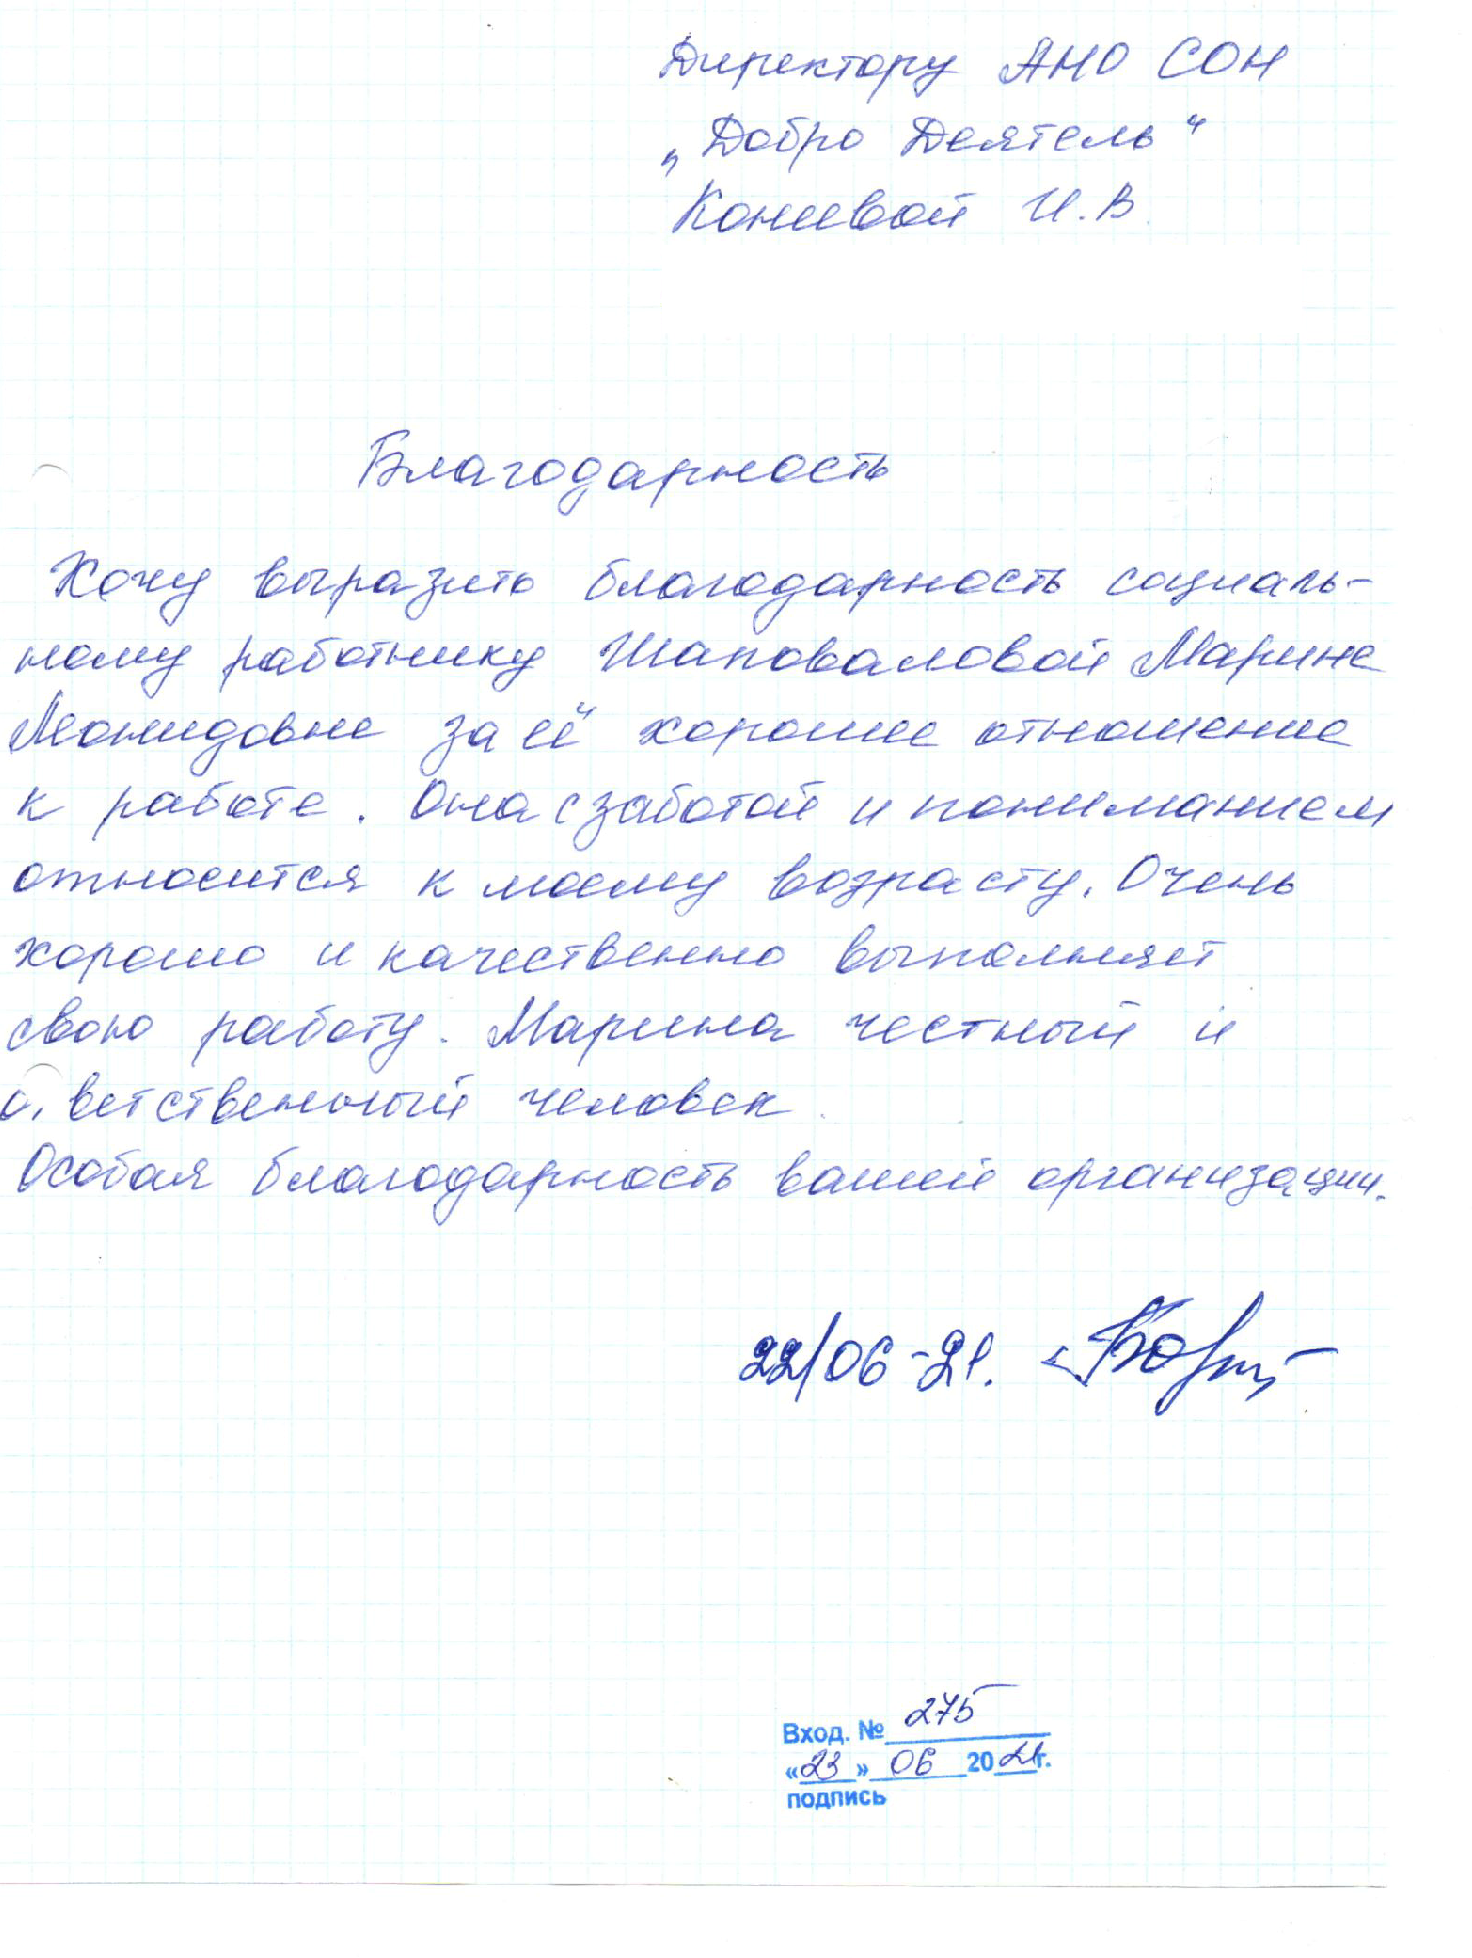 Директору АНО СОН
„Добро Деятель“
Коневой И.В.
Благодарность
Хочу выразить благодарность социаль-
ному работнику Шаповаловой Марине
Леонидовне за её хорошее отношение
к работе. Она с заботой и пониманием
относится к моему возрасту. Очень
хорошо и качественно выполняет
свою работу. Марина честный и
ответственный человек.
Особая благодарность вашей организации.
22/06-21.
Вход. № 275
«23» 06 2021г.
подпись